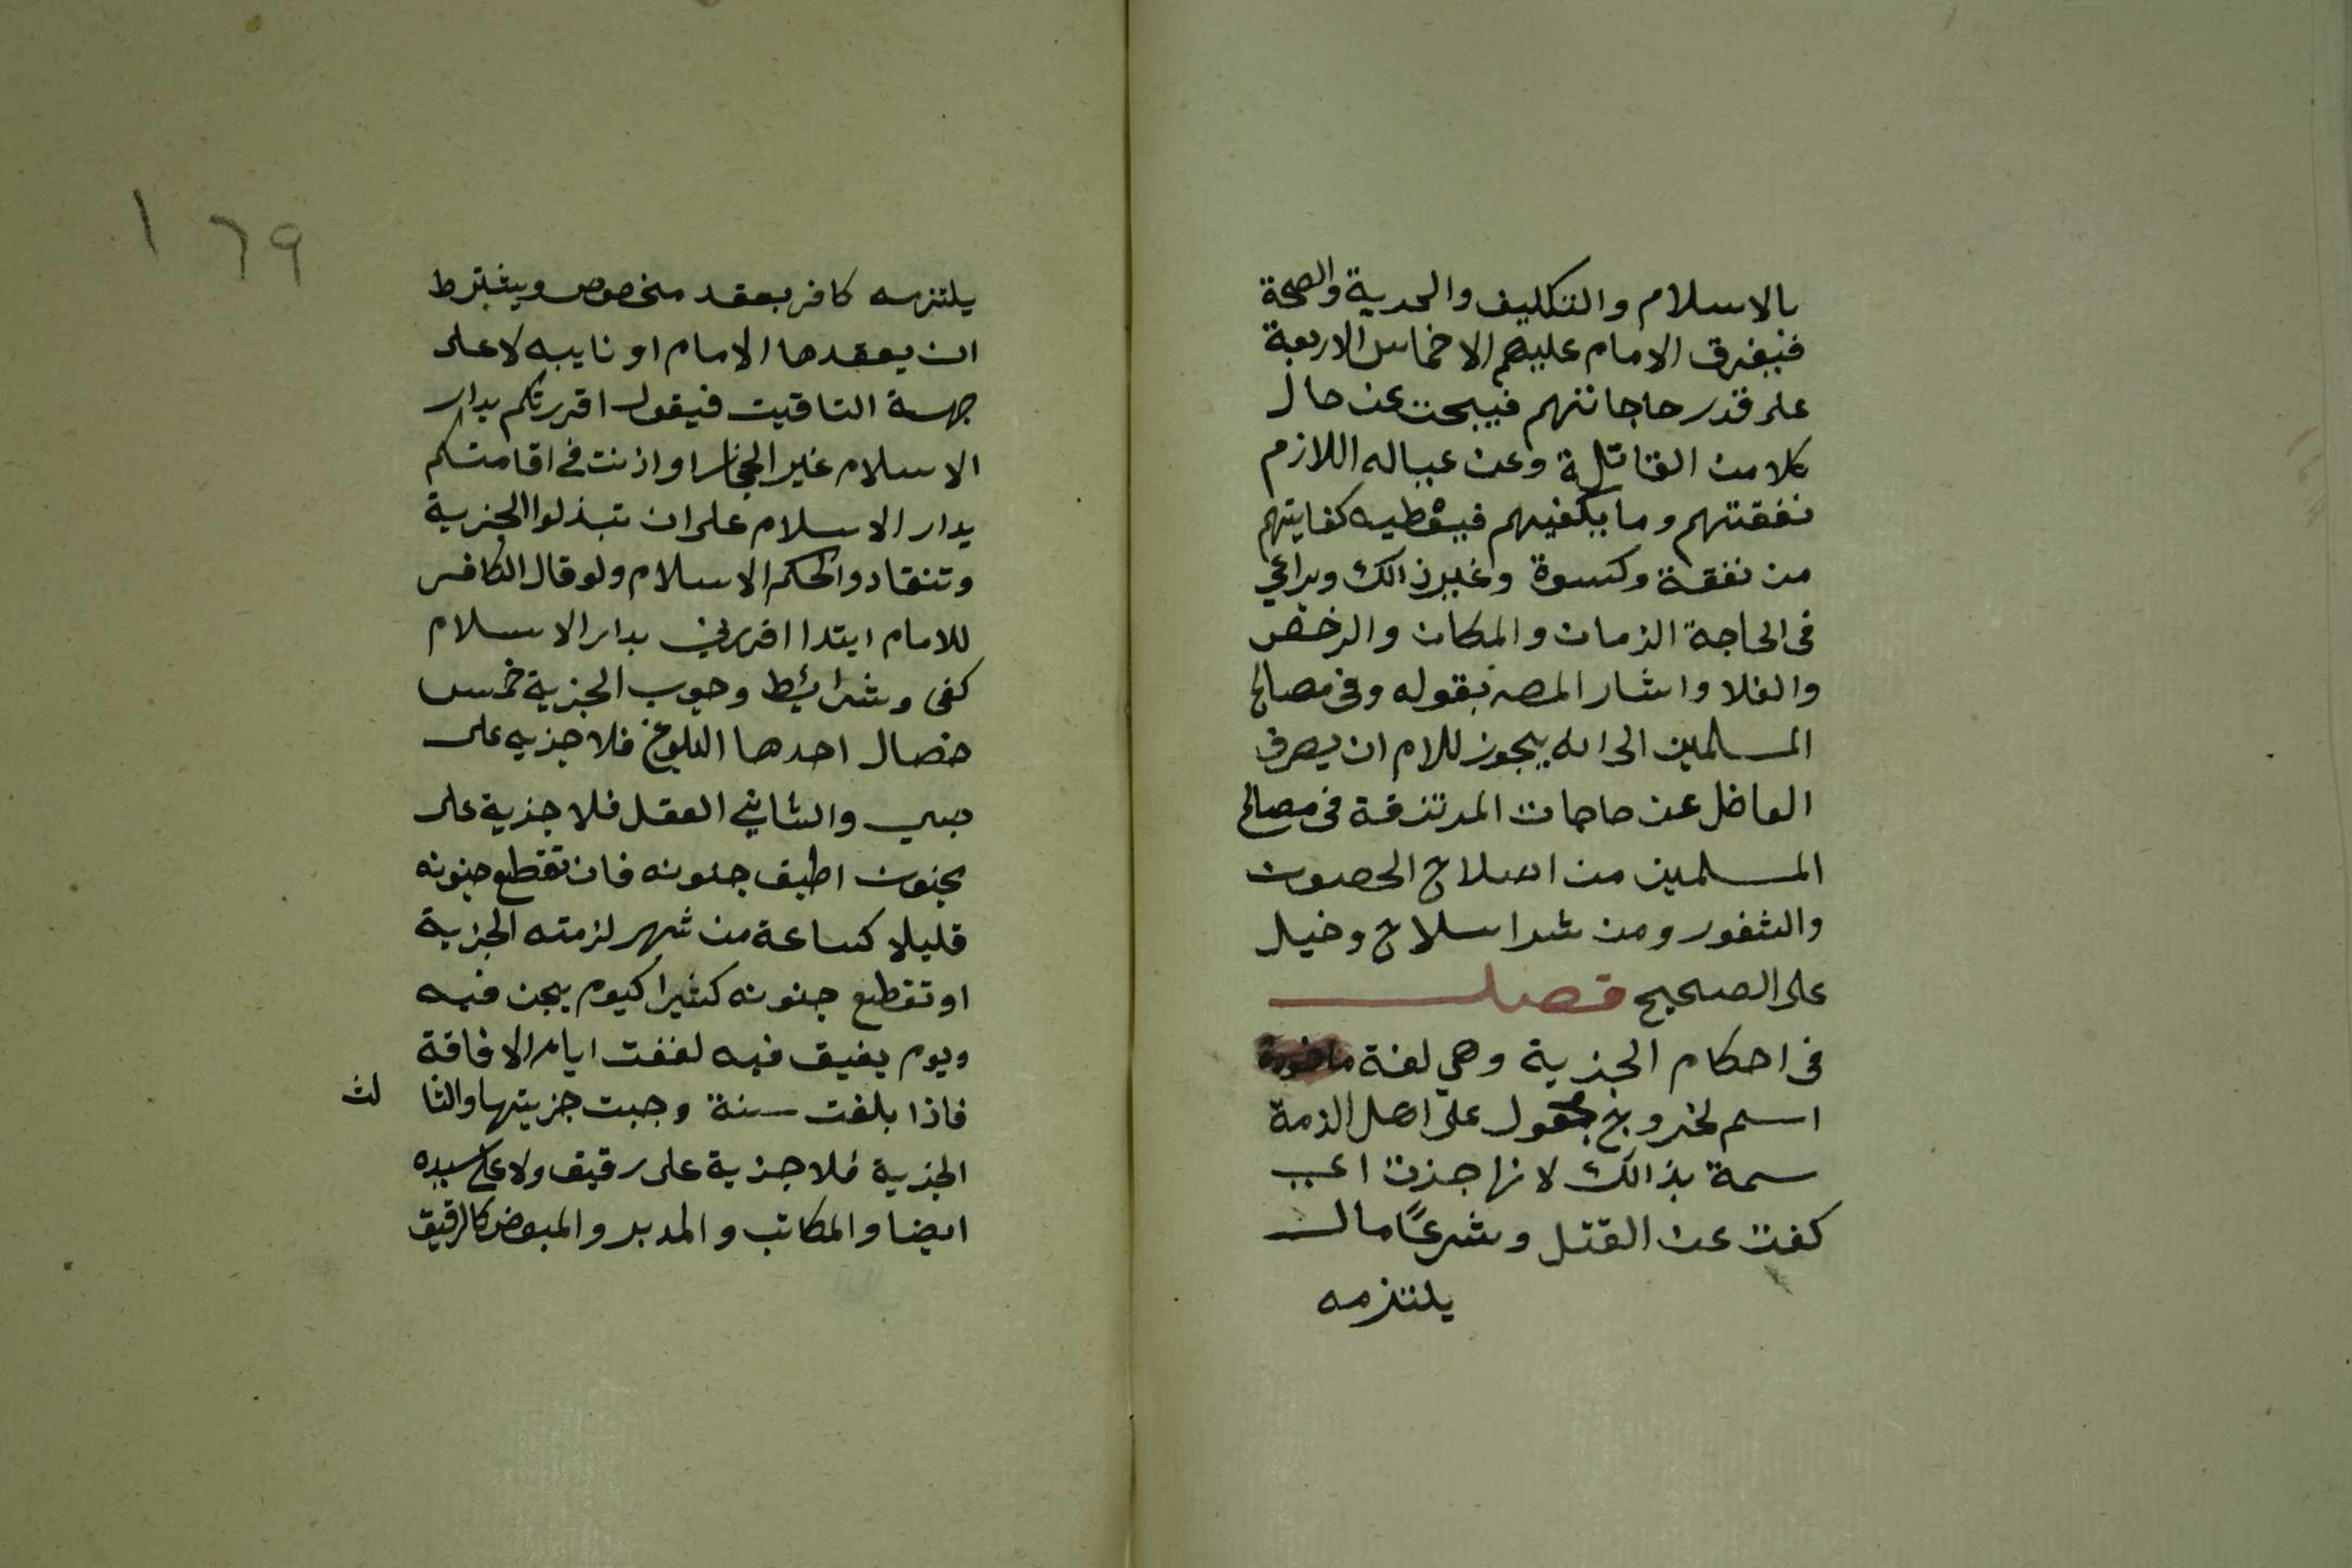 بالاسلام والتكليف والحرية والصحة
فيفرق الامام عليهم الاخماس الاربعة
على قدر حاجاتهم فيبحث عن حال
كلا من القاتلة وعن عياله اللازم
نفقتهم وما يكفيهم فيعطيه كفايتهم
من نفقة وكسوة وغير ذالك ويراعي
في الحاجة الزمان والمكان والرخص
والغلا واشار المصـ بقوله وفي مصالح
المسلمين الى انه يجوز للامام ان يصرف
الفاضل عن حاجات المرتزقة في مصالح
المسلمين من اصلاح الحصون
والثغور ومن شرا سلاح وخيل
على الصحيح فصل
في احكام الجزية وهي لغة
اسم لخروج مجعول على اهل الذمة
سمة بذالك لانها جزت اعي
كفت عن القتل وشرعًا مال
يلتزمه
١٦٩
يلتزمه كافر بعقد مخصوص ويشترط
ان يعقدها الامام او نايبه لا على
جهة التاقيت فيقول اقررتكم بدار
الاسلام غير الحجاز او اذنت في اقامتكم
بدار الاسلام على ان تبذلوا الجزية
وتنقادوا لحكم الاسلام ولو قال الكافر
للامام ابتدا اقررني بدار الاسلام
كفى وشرائط وجوب الجزية خمس
خصال احدها البلوغ فلا جزيه على
صبي والثاني العقل فلا جزية على
مجنون اطبق جنونه فان تقطع جنونه
قليلا كساعة من شهر لزمته الجزية
او تقطع جنونه كثيرا كيوم يجن فيه
ويوم يفيق فيه لفقت ايام الافاقة
فاذا بلغت سنة وجبت جزيتها والثا لث
الجزية فلا جزية على رقيق ولا على سيده
ايضا والمكاتب والمدبر والمبعض كالرقيق